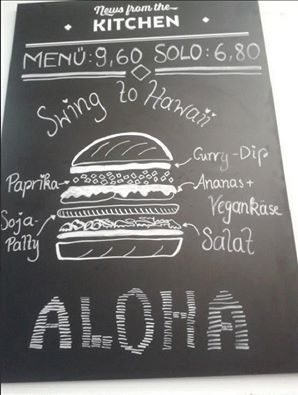 News from the
KITCHEN
MENÜ: 9,60 SOLO: 6,80
Swing to Hawaii
Curry-Dip
Paprika
Ananas+
Vegankäse
Soja-
Patty
Salat
ALOHA